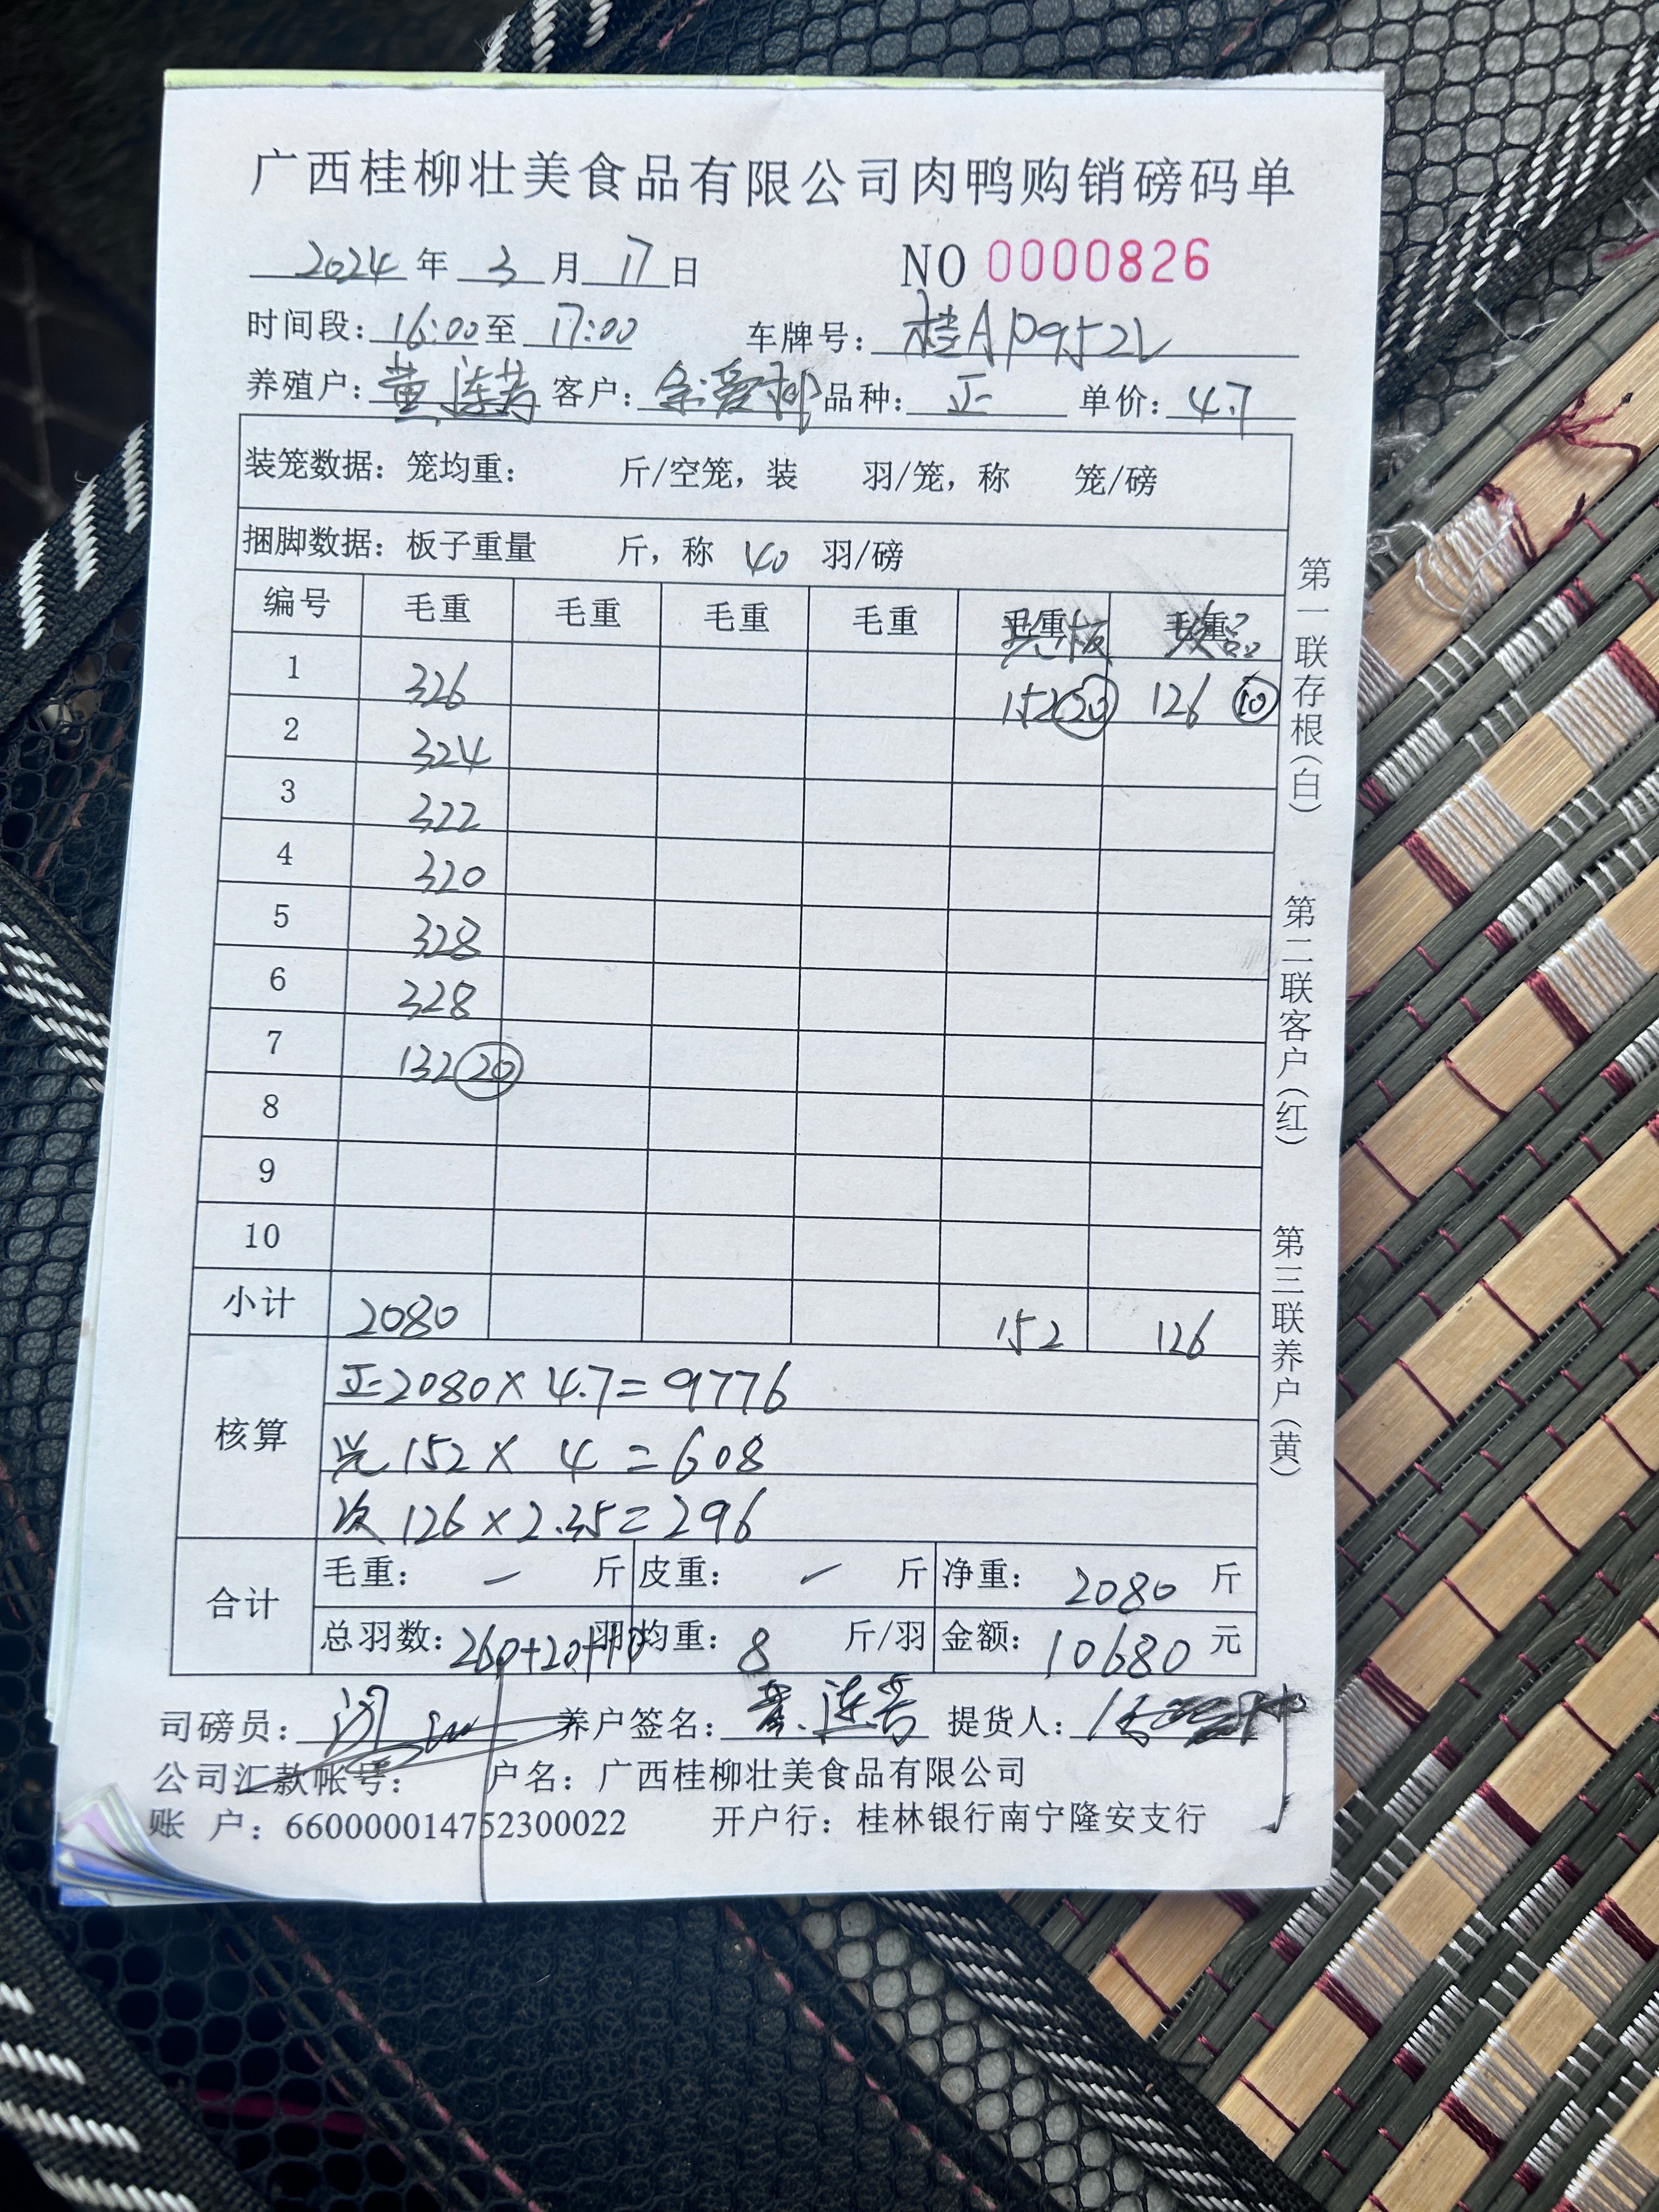 广西桂柳壮美食品有限公司肉鸭购销磅码单
2024 年 3 月 17 日 NO 0000826
时间段: 16:00 至 17:00 车牌号: 桂AP952L
养殖户: 黄连芳 客户: 余爱柳 品种: 正 单价: 4.7
装笼数据: 笼均重: 斤/空笼, 装 羽/笼, 称 笼/磅
捆脚数据: 板子重量 斤, 称 40 羽/磅
编号 毛重 毛重 毛重 毛重 毛重 毛重
1 326 152 20 126 10
2 324
3 322
4 320
5 328
6 328
7 132 20
8
9
10
小计 2080 152 126
核算
正 2080 × 4.7 = 9776
152 × 4 = 608
次 126 × 2.35 = 296
合计
毛重: — 斤 皮重: — 斤 净重: 2080 斤
总羽数: 260+20+10 羽 均重: 8 斤/羽 金额: 10680 元
司磅员: 养户签名: 黄连芳 提货人:
公司汇款帐号: 户名: 广西桂柳壮美食品有限公司
账 户: 660000014752300022 开户行: 桂林银行南宁隆安支行
第一联存根(白)
第二联客户(红)
第三联养户(黄)